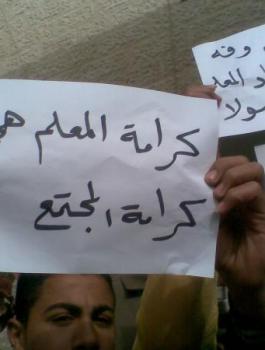 كرامة المعلم هي
كرامة المجتمع
وقفة
المعل